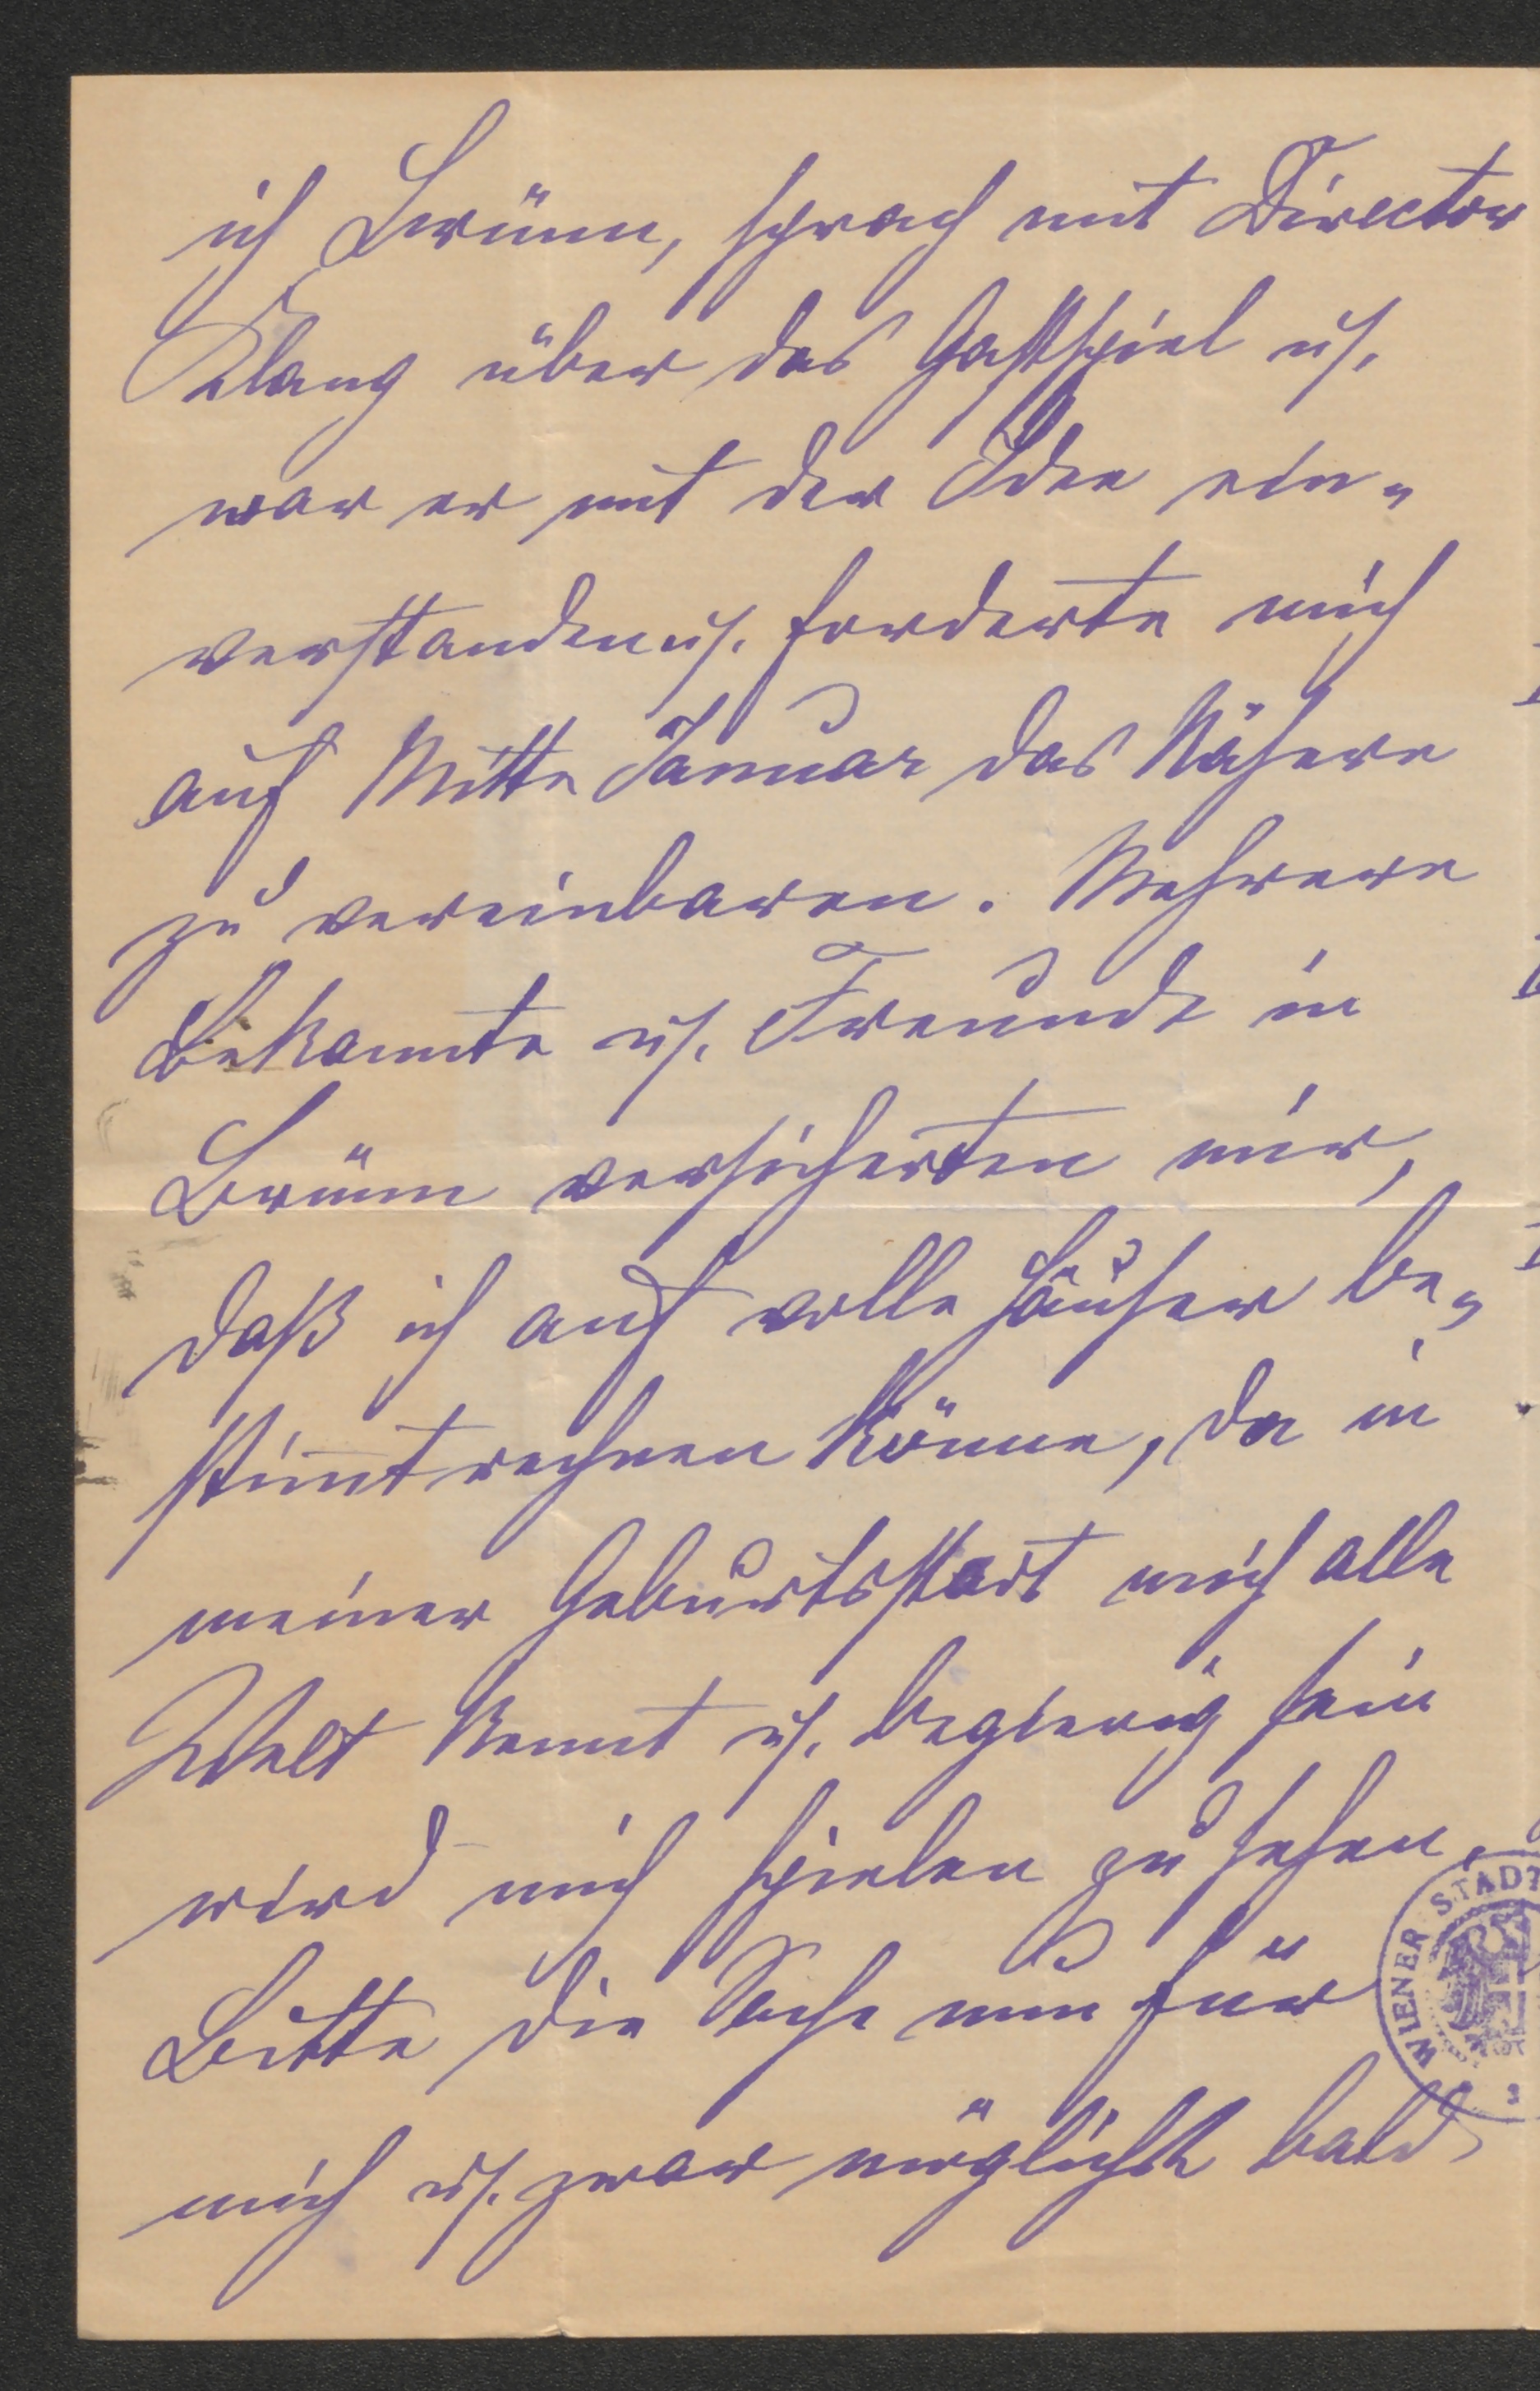 ich Brünn, sprach mit Director
Klang über das Gastspiel u.
war er mit der Idee ein-
verstanden u. forderte mich
auf Mitte Januar das Nähere
zu vereinbaren. Mehrere
Bekannte u. Freunde in
Brünn versicherten mir,
daß ich auf volle Häuser be-
stimt rechnen könne, da in
meiner Geburtsstadt mich alle
Welt kennt u. begierig sein
wird mich spielen zu sehen.
Bitte die Sache nun für
mich u. zwar möglichst bald
WIENER STADT